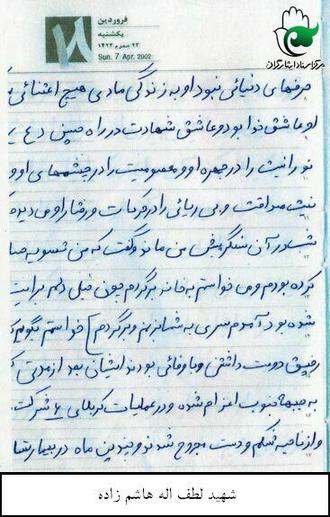 فروردین
یکشنبه
۱۸
۲۳ محرم ۱۴۲۳
Sun. 7 Apr. 2002
مرکز اسناد ایثارگران
حرفهای دنیائی نبود او به زندگی مادی هیچ اعتنائی
او عاشق خدا بود و عاشق شهادت در راه حسین (ع)
نورانیت را در چهره او و معصومیت را در چشمهای او و
نیت صداقت و بی ریائی را در حرکات و رفتار او می دیدم
شب در آن سنگر پیش من ماند و گفت که من تسویه حساب
کرده بودم و می خواستم به خانه برگردم چون خیلی دلم برایت
شده بود آمدم سری به شما بزنم و برگردم) خواستم بگویم که
رفیق دوست داشتنی و باوفائی بودند ایشان بعد از مدتی که
به جبهه جنوب اعزام شده و در عملیات کربلای ۴ شرکت
و از ناحیه شکم و دست مجروح شدند و چندین ماه در بیمارستا
شهید لطف اله هاشم زاده